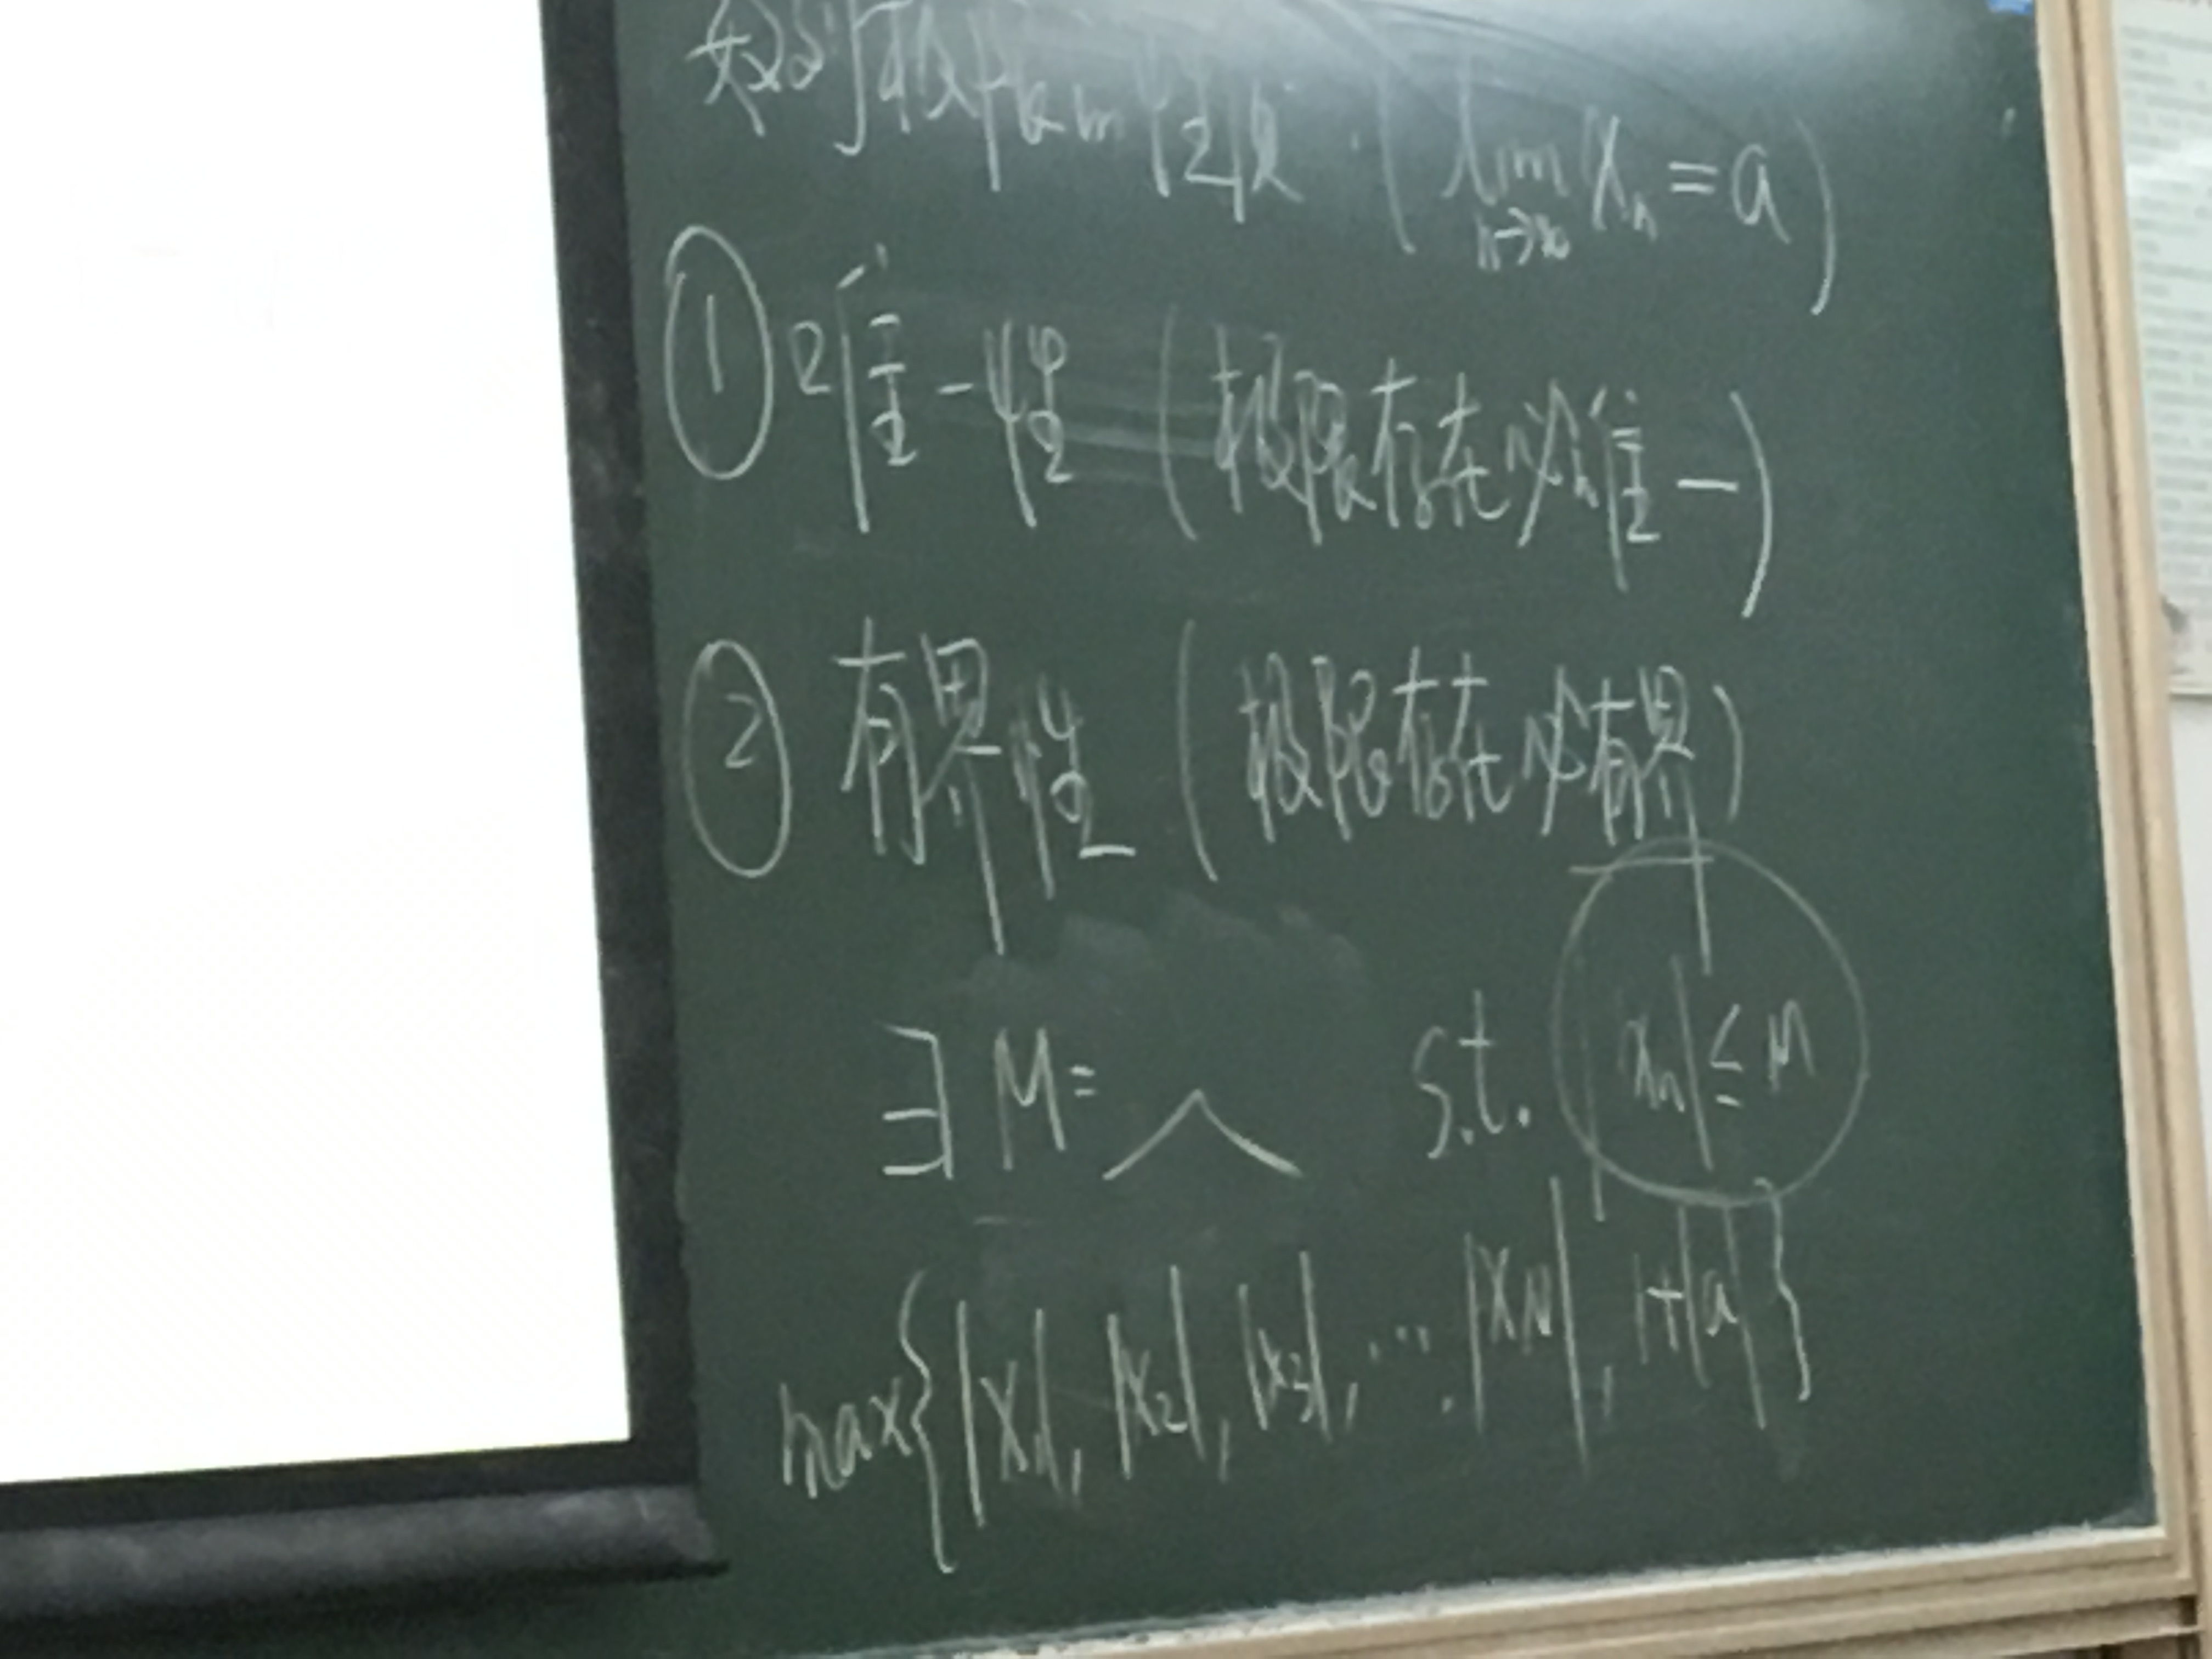 数列极限的性质 (lim n→∞ xₙ = a)
① 唯一性 (极限存在必唯一)
② 有界性 (极限存在必有界)
∃ M = s.t. |xₙ| ≤ M
max{|x₁|, |x₂|, |x₃|, ..., |x_N|, 1+|a|}